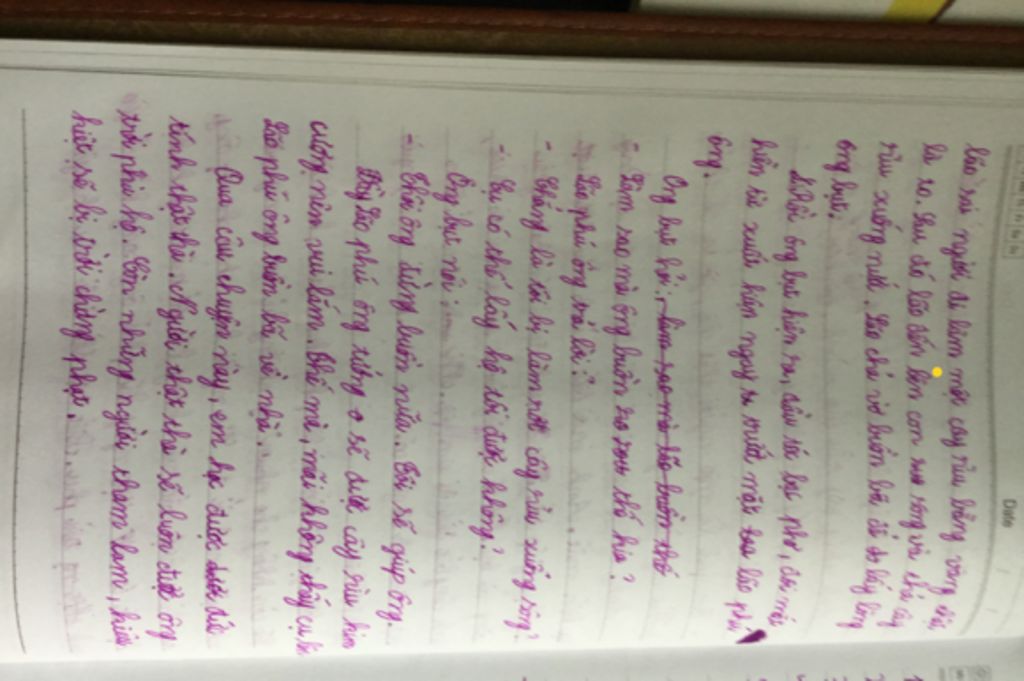 Date
lão sai người đi làm một cây rìu bằng vàng đãi
là xo. Sau đó lão đến bên con sông và thả cây
rìu xuống nước. Lão chờ vờ buồn bã để lấy lòng
ông bụt.
Rồi ông bụt hiện ra, đầu tóc bạc phơ, đôi mắt
hiền từ xuất hiện ngay trước mặt lão phú
ông.
Ông bụt hỏi: làm sao mà lão buồn thế
- Làm sao mà ông buồn rười rượi thế kia?
Lão phú ông trả lời:
- Chẳng là tôi bị làm rơi cây rìu xuống sông?
- Cụ có thể lấy hộ tôi được không?
Ông bụt nói:
- Thôi ông đừng buồn nữa. Tôi sẽ giúp ông.
Thấy lão phú ông tưởng sẽ được cây rìu kim
cương nên vui lắm. Thế mà, mãi không thấy cụ
Lão phú ông buồn bã về nhà.
Qua câu chuyện này, em học được đức
tính thật thà. Người thật thà sẽ luôn được ông
trời phù hộ. Còn những người tham lam, hiểu
biết sẽ bị trời trừng phạt.